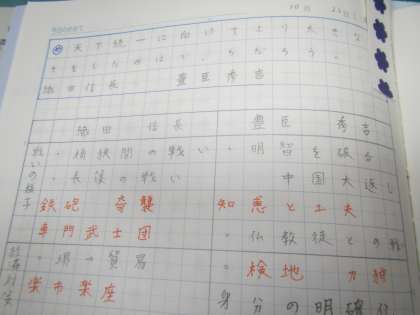 10月
天下統一に向けてより大きな
をしたのはどちらだろう。
織田信長 豊臣秀吉
織田 信長 豊臣 秀吉
戦いの様子
・桶狭間の戦い ・明智を破る
・長篠の戦い 中国大返し
鉄砲 奇襲 知恵と工夫
専門武士団 ・仏教徒との
・堺→貿易 ・検地 刀狩
楽市楽座 身分の明確